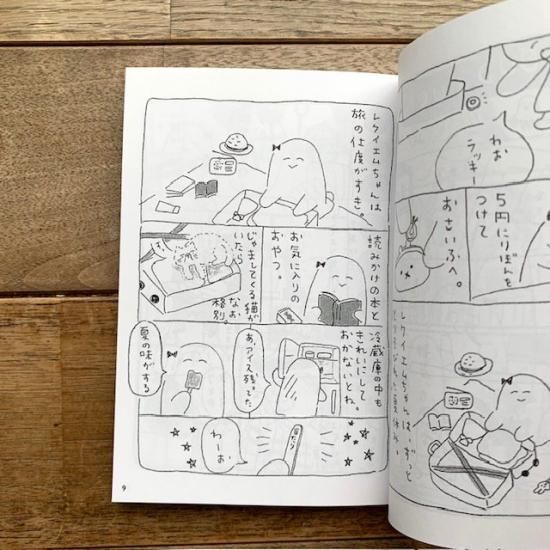 レクイエムちゃんは
旅の仕度がすき。
読みかけの本と
お気に入りの
おやつ。
じゃましてくる猫が
いたら
なお、
格別。
冷蔵庫の中も
きれいにして
おかないとね。
あ、アイス残ってた
夏の味がする
当たり
わーお
9
わお
ラッキー
5円にりぼんを
つけて
おさいふへ。
レクイエムちゃんは、ずっと